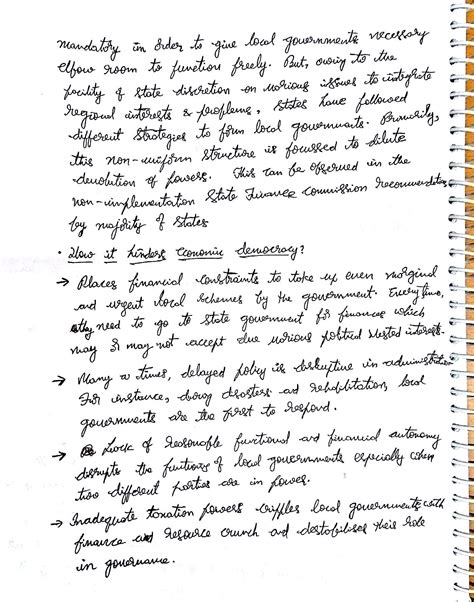 mandatory in order to give local governments necessary
elbow room to function freely. But, owing to the
facility of state discretion on various issues to integrate
regional interests & problems, states have followed
different strategies to form local governments. Primarily,
this non-uniform structure is focussed to dilute
devolution of powers. This can be observed in the
non-implementation State Finance Commission recommendations
by majority of states
• How it hinders economic democracy?
→ Places financial constraints to take up even marginal
and urgent local schemes by the government. Every time,
they need to go to state government for finances which
may or may not accept due various political vested interests.
→ Many a times, delayed policy is disruptive in administration
For instance, during disasters and rehabilitation, local
governments are the first to respond.
→ Lack of reasonable functional and financial autonomy
disrupts the functions of local governments especially when
two different parties are in power.
→ Inadequate taxation powers cripples local governments with
finance and resource crunch and destabilises their role
in governance.